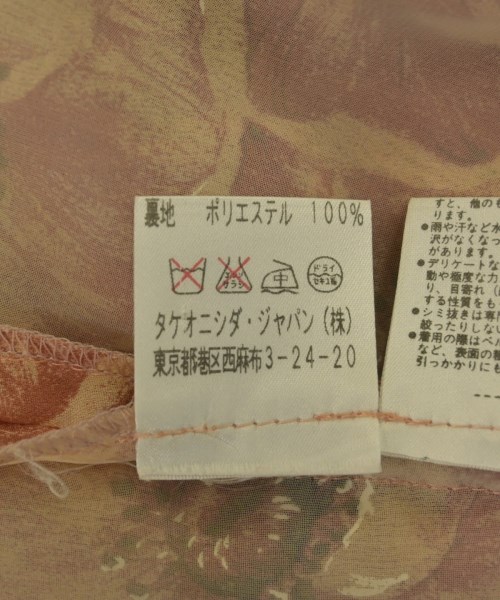 裏地 ポリエステル 100%
エンソ
サラシ
中
ドライ
セキユ系
タケオニシダ・ジャパン(株)
東京都港区西麻布3-24-20
すと、他のも
ります。
●雨や汗など水
沢がなくなっ
があります。
●デリケートな
動や極度な力
り、目寄れ
する性質をも
●シミ抜きは専門
絞ったりしない
●着用の際はベル
など、表面の粗
引っかかりにも